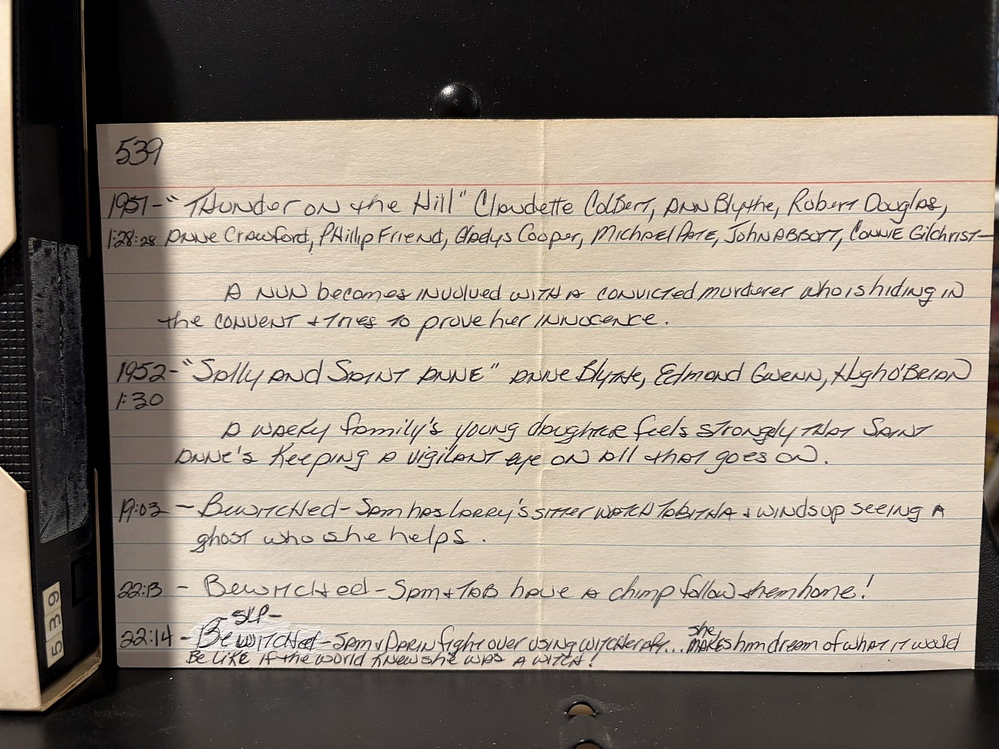 539
1951-"Thunder on the Hill" Claudette Colbert, Ann Blythe, Robert Douglas,
1:28:28 Anne Crawford, Phillip Friend, Gladys Cooper, Michael Pate, John Abbott, Connie Gilchrist-
A nun becomes involved with a convicted murderer who is hiding in
the convent + tries to prove her innocence.
1952-"Sally and Saint Anne" Anne Blythe, Edmond Gwenn, Hugh O'Brian
1:30
A wacky family's young daughter feels strongly that Saint
Anne's keeping a vigilant eye on all that goes on.
19:03 - Bewitched - Sam has Larry's sitter watch Tabitha + winds up seeing a
ghost who she helps.
22:13 - Bewitched - Sam + Tab have a chimp follow them home!
-SLP-
22:14 - Bewitched - Sam + Darin fight over using witchcraft... she makes him dream of what it would
be like if the world knew she was a witch!
539